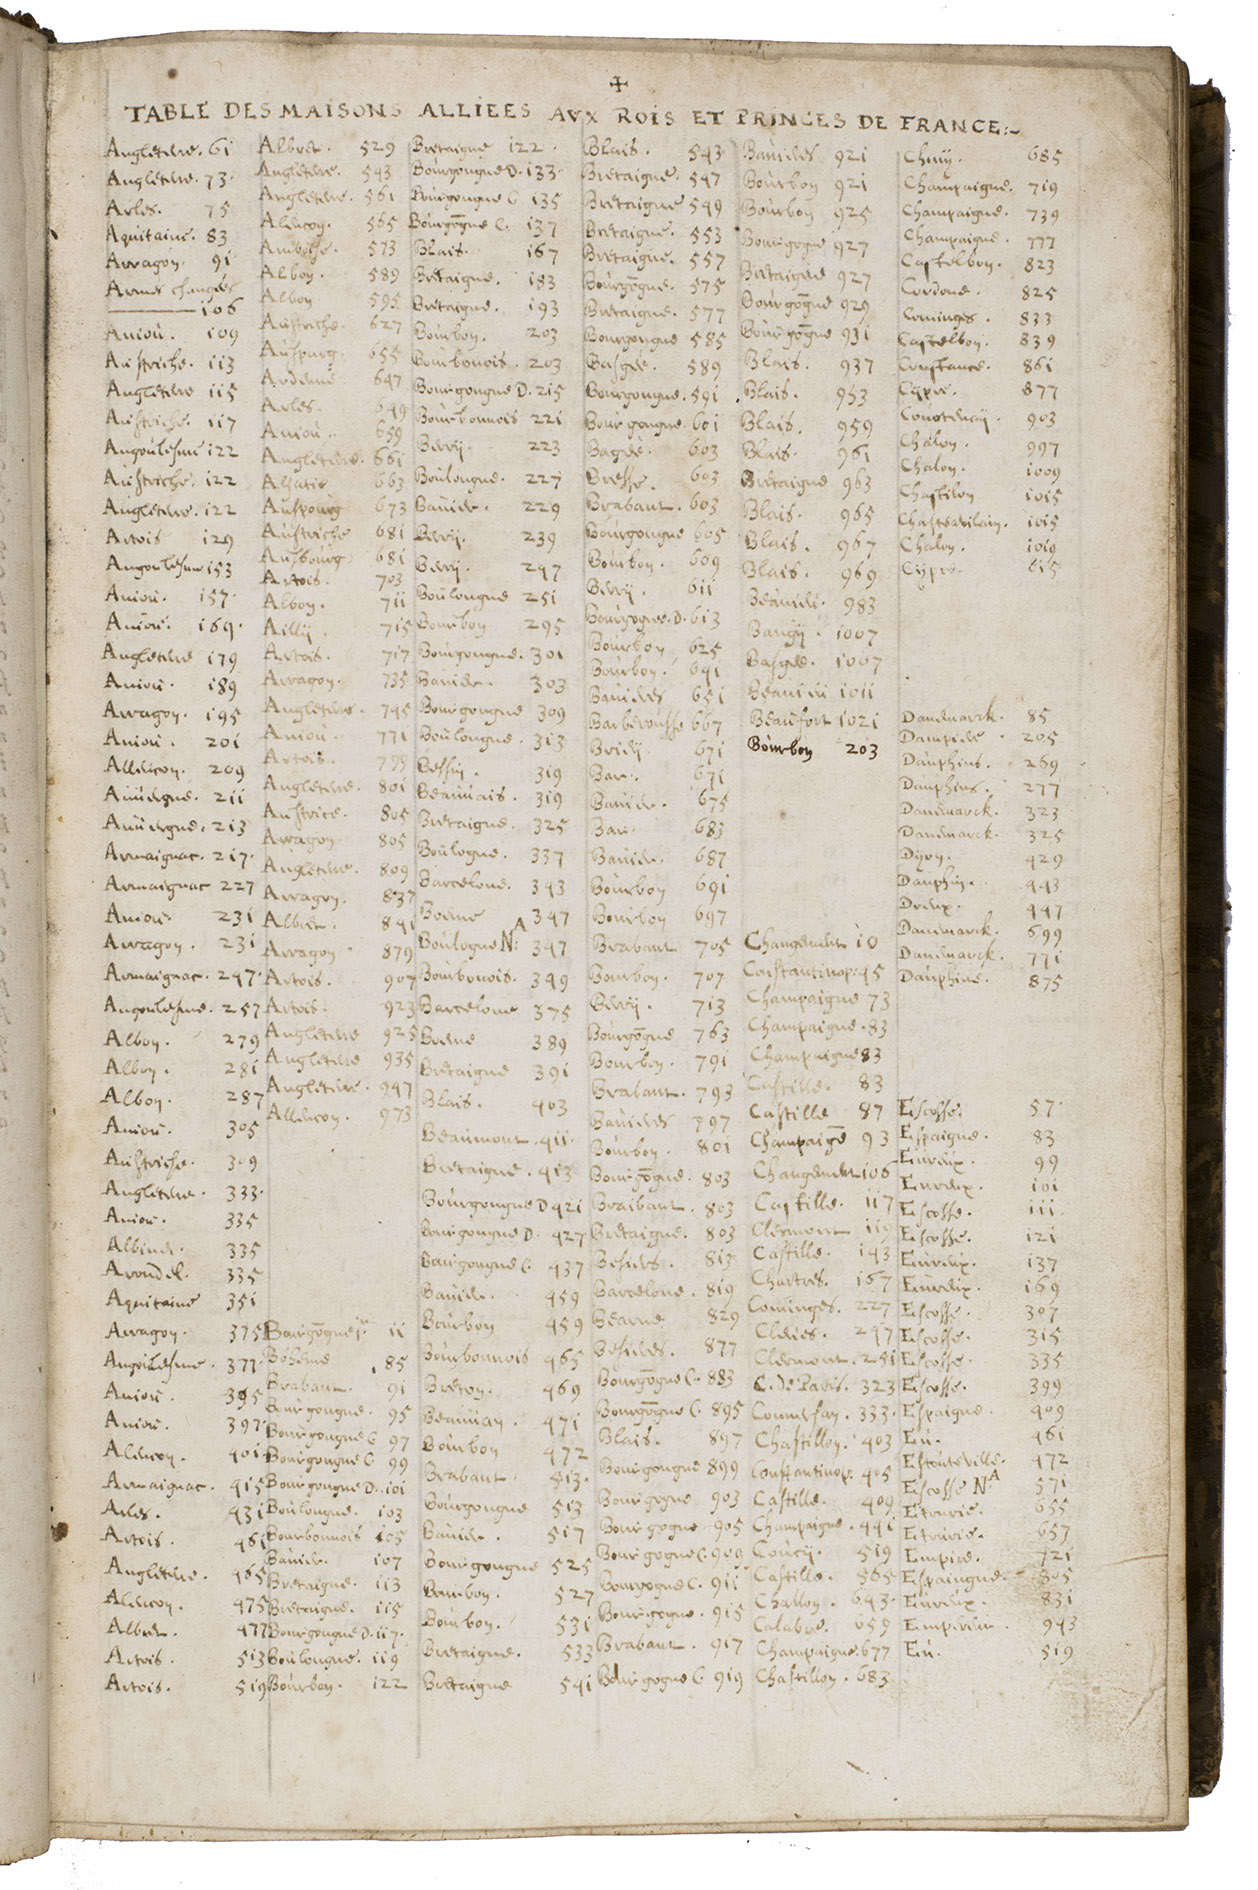 +
TABLE DES MAISONS ALLIEES AVX ROIS ET PRINCES DE FRANCE:~
Angleterre. 61
Angleterre. 73.
Arles. 75
Aquitaine. 83
Arragon. 91
Armes changées
106
Aniou. 109
Austriche. 113
Angleterre 115
Austriche. 117
Angoulesme 122
Austriche. 122
Angleterre. 122
Artois 129
Angoulesme 153
Aniou. 157.
Aniou. 169.
Angleterre 179
Aniou. 189
Arragon. 195
Aniou. 201
Allencon. 209
Auuergne. 211
Auuergne. 213
Armaignac. 217.
Armaignac 227
Aniou. 231
Arragon. 231
Armaignac. 247.
Angoulesme. 257
Albon. 279
Albon. 281
Albon. 287
Aniou. 305
Austriche. 309
Angleterre. 333.
Aniou. 335
335
Arondel. 335
Aquitaine 351
Arragon. 375
Angoulesme. 377.
Aniou. 395
Aniou. 397.
Alencon. 401
Armaignac. 415
Arles. 431
Artois. 461
Angleterre. 465
Alencon. 475
Albret. 477
Artois. 513
Artois. 519
Albret. 529
Angleterre. 543
Angleterre. 561
Alencon. 565
Amboise. 573
Albon. 589
Albon 595
Austriche. 627
Auspurg. 655
Ardenne 647
Arles. 649
Aniou. 659
Angleterre. 661
Alsatie 663
Auspourg 673
Austriche 681
Ausbourg 681
Artois. 703
Albon. 711
Ailly. 715
Artois. 717
Arragon. 735
Angleterre. 745
Aniou. 771
Artois. 799
Angleterre. 801
Austrice. 805
Arragon. 805
Angleterre. 809
Arragon. 837
Albret. 841
Arragon 879
Artois. 907
Artois. 923
Angleterre 925
Angleterre 935
Angleterre. 947
Allencon. 973
Bourgōgne 11
Bohéme 85
Brabant. 91
Bourgongne. 95
Bourgongne C 97
Bourgongne C 99
Bourgongne D. 101
Boulongne. 103
Bourbonnois 105
Bauier. 107
Bretaigne. 113
Bretaigne. 115
Bourgongne D. 117.
Boulongne. 119
Bourbon. 122
Bretaigne 122.
Bourgongne D. 133.
Bourgongne C 135
Bourgōgne C. 137
Blais. 167
Bretaigne. 183
Bretaigne. 193
Bourbon. 203
Bourbonois. 203
Bourgongne D. 215
Bourbonnois 221
Berry. 223
Boulongne. 227
Bauier. 229
Berry. 239
Berry. 247
Boulongne 251
Bourbon 295
Bourgongne. 301
Bauier. 303
Bourgongne 309
Boulongne. 313
Bessin. 319
Beauuais. 319
Bretaigne. 325
Boulogne. 337
Barcelone. 343
Boeme 347
Boulogne N.A 347
Bourbonois. 349
Barcelone 375
Boeme 389
Bretaigne 391
Blais. 403
Beaumont. 411.
Bretaigne. 413
Bourgongne D 421
Bourgongne D. 427
Bourgongne C. 437
Bauier. 459
Bourbon 459
Bourbonnois 465
Breton. 469
Beauuau. 471
Bourbon 472
Brabant 513.
Bourgongne 513
Bauier. 517
Bourgongne 525
Bourbon. 527
Bourbon. 531
Bretaigne. 533
Bretaigne 541
Blais. 543
Bretaigne. 547
Bretaigne 549
Bretaigne. 553
Bretaigne. 557
Bourgōgne. 575
Bretaigne. 577
Bourgongne 585
Basgée. 589
Bourgongne. 591
Bourgongne. 601
Bagée. 603
Bresse. 603
Brabant. 603
Bourgongne 605
Bourbon. 609
Berry. 611
Bourgogne. D. 613
Bourbon 625
Bourbon. 641
Bauieres 651
Barberousse 667
671
Bar. 671
Bauier. 675
Bar. 683
Bauier. 687
Bourbon 691
Bourbon 697
Brabant 705
Bourbon. 707
Berry. 713
Bourgōgne 763
Bourbon. 791
Brabant. 793
Bauieres 797
Bourbon. 801
Bourgōgne. 803
Braibant. 803
Bretaigne. 803
Besiers. 813
Barcelone. 819
Bearne 829
Besiers. 877
Bourgōgne C. 883
Bourgōgne C. 895
Blais. 897
Bourgongne 899
Bourgogne 903
Bourgogne 905
Bourgogne C. 909
Bourgogne C. 911
Bourgogne. 915
Brabant. 917
Bourgogne C 919
Bauieres 921
Bourbon 921
Bourbon 925
Bourgogne 927
Bretaigne 927
Bourgōgne 929
Bourgōgne 931
Blais. 937
Blais. 953
Blais. 959
Blais. 961
Bretaigne 963
Blais. 965
Blais. 967
Blais. 969
Beauieu. 983
Baugy. 1007
Basgée. 1007
Beauieu 1011
Beaufort 1021
Bourbon 203
Changement 10
Constantinop: 45
Champaigne 73
Champaigne. 83
Champaigne 83
Castille. 83
Castille 87
Champaigē 93
Changement 106
Castille. 117
Clermont 119
Castille. 143
Chartres. 167
Cominges. 227
Cleues. 247
Clermont. 251
C. de Paris. 323
Courtesan. 333.
Chastillon. 403
Constantinop: 405
Castille. 409
Champaigne. 441
Coucy. 519
Castille. 565
Challon. 643.
Calabre. 659
Champaigne. 677
Chastillon. 683
Chiny. 685
Champaigne. 719
Champaigne. 739
Champaigne. 777
Castelbon. 823
Cordone. 825
Cominges. 833
Castelbon. 839
Constance. 861
Cypre. 877
Courtenay. 903
Chalon. 997
Chalon. 1009
Chastilon 1015
Chasteauilain. 1015
Chalon. 1019
Cypre. 615
Danemarck. 85
Dampiere. 205
Dauphins. 269
Dauphins. 277
Danemarck. 323
Danemarck. 325
Dyon. 429
Dauphin. 443
Dreux. 447
Danemarck. 699
Danemarck. 771
Dauphiné. 875
Escosse. 57.
Espaigne. 83
Eureux. 99
Eureux. 101
Escosse. 111
Escosse. 121
Eureux. 137
Eureux. 169
Escosse. 307
Escosse. 315
Escosse. 335
Escosse. 399
Espaigne. 409
Eu. 461
Estouteville. 472
Escosse N.A 571
Etrurie. 655
Etrurie. 657
Empire. 721
Espaingne. 805
Eureux. 831
Empereur. 943
Eu. 519